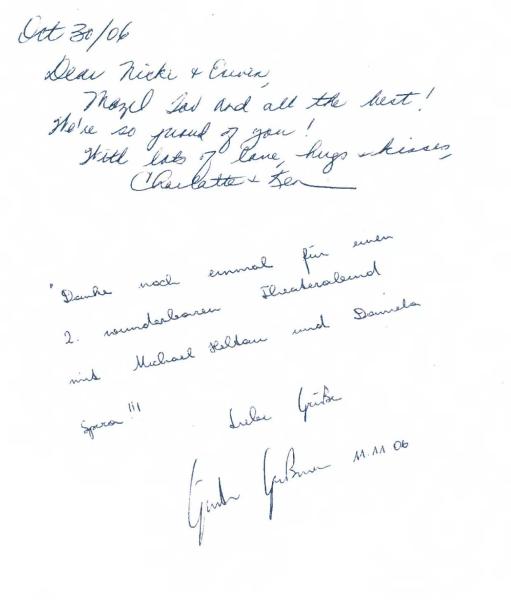 Oct 30/06
Dear Nicki + Erwin,
Mazel Tov and all the best!
We're so proud of you!
With lots of love, hugs + kisses,
Charlotte + Ken
"Danke noch einmal für einen
2. wunderbaren Theaterabend
mit Michael Heltau und Daniela
Spera !!!
Liebe Grüße
11.11 06